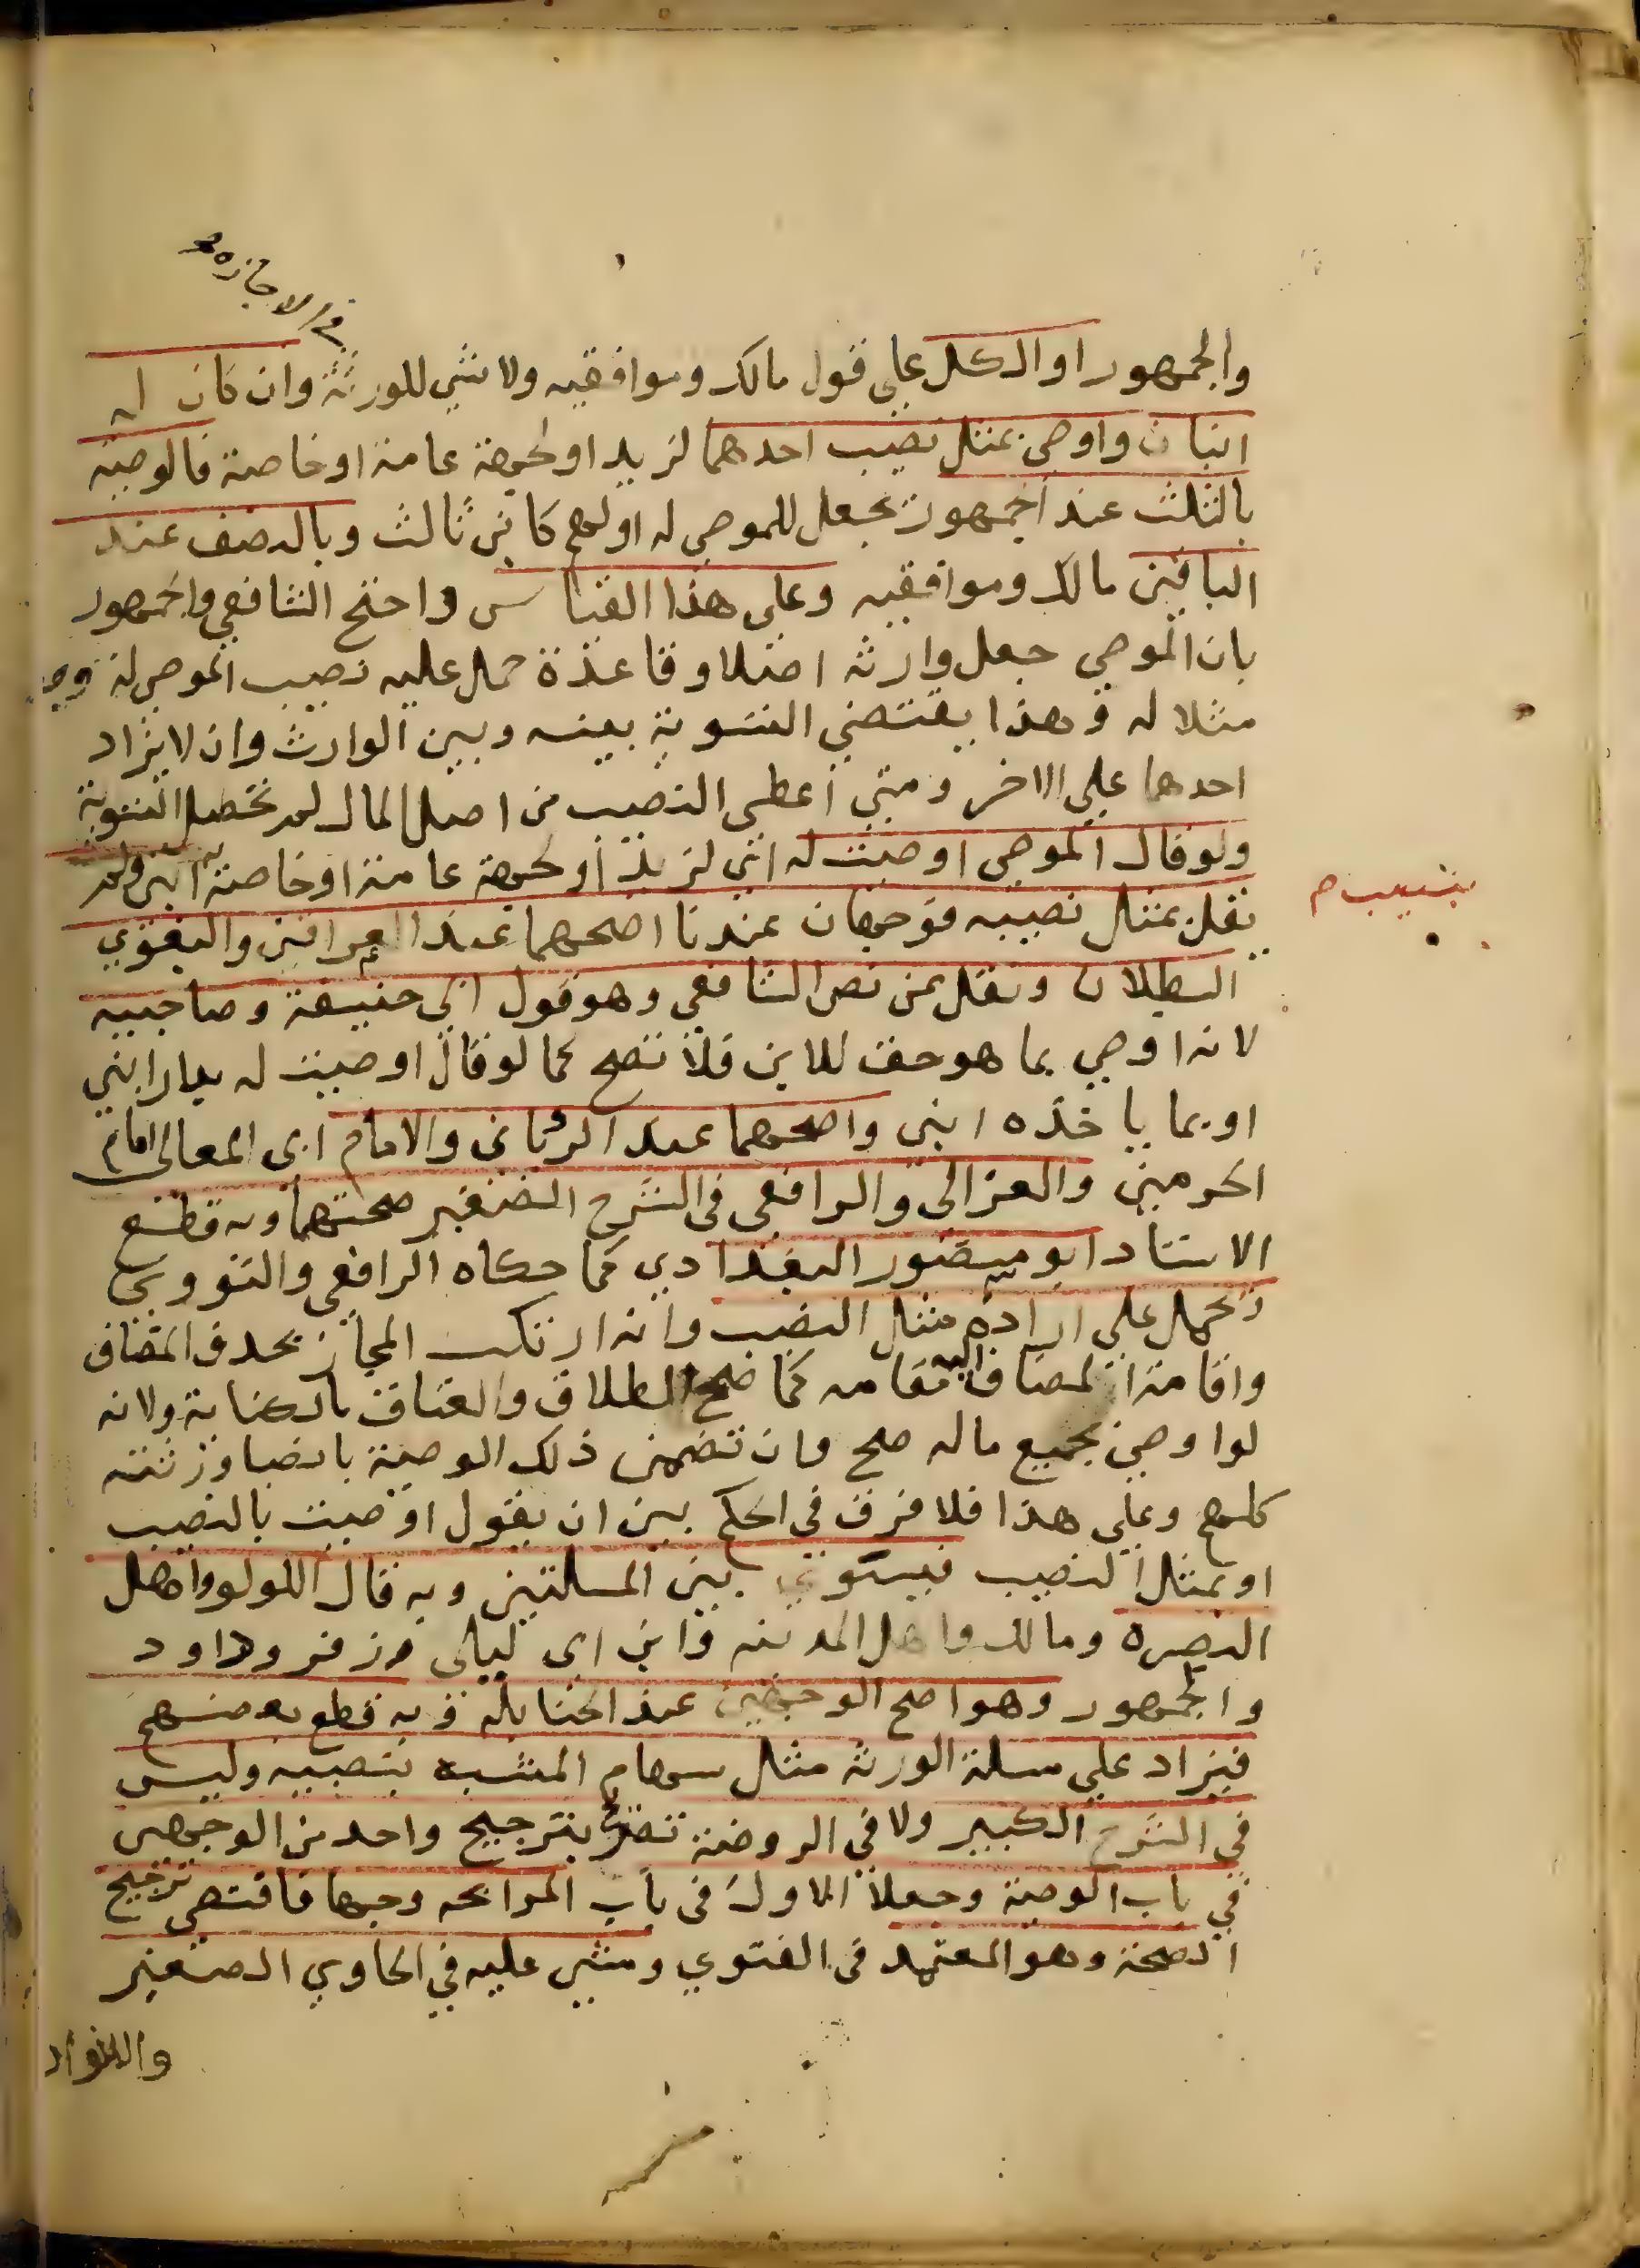 في الاجازة صح
والجمهور او الكل على قول مالك وموافقيه ولا شي للورثة وان كان له
ابنان واوصى بمثل نصيب احدهما لزيد او لجهة عامة او خاصة فالوصية
بالثلث عند الجمهور بجعل للموصى له او لهم كابن ثالث وبالنصف عند
الباقين مالك وموافقيه وعلى هذا القياس واحتج الشافعي والجمهور
بان الموصي جعل وارثه اصلا وقاعدة حمل عليه نصيب الموصى له
مثلا له وهذا يقتضي التسوية بينه وبين الوارث وان لا يزاد
احدهما علي الاخر ومتي اعطى النصيب من اصل المال لم تحصل التسوية
ولو قال الموصي اوصيت له ابني لزيد او لجهة عامة او خاصة ابني ولم
بنصيب م
يقل بمثل نصيبه فوجهان عندنا اصحهما عند العراقيين والبغوي
البطلان ونقل عن نص الشافعي وهو قول ابي حنيفة وصاحبيه
لانه اوصي بما هو حق للابن فلا تصح كما لو قال اوصيت له بدار ابني
او بما ياخذه ابني واصحهما عند الروياني والامام ابي المعالي امام
الحرمين والغزالي والرافعي في الشرح الصغير صحتها وبه قطع
الاستاد ابو منصور البغدادي كما حكاه الرافعي والنووي
تحمل علي ارادة مثل النصيب وانه ارتكب المجاز بحذف المضاف
واقامة المضاف اليه مقامه كما صح الطلاق والعتاق بالكناية ولانه
لو اوصى بجميع ماله صح وان تضمن ذلك الوصية بانصبا ورثته
كلهم وعلى هذا فلا فرق في الحكم بين ان يقول اوصيت بالنصيب
او بمثل النصيب فيستوي بين المسلتين وبه قال اللولو واهل
البصرة ومالك واهل المدينه وابن ابي ليلى وزفر وداود
والجمهور وهو اصح الوجهين عند الحنابلة وبه قطع بعضهم
فيزاد علي مسلة الورثه مثل سهام المشبه بنصيبه وليس
في الشرح الكبير ولا في الروضة تصريح بترجيح واحد من الوجهين
في باب الوصية وجعلا الاول في باب المرابحه وجها فاقتضى ترجيح
الصحة وهو المعتمد في الفتوي ومشى عليه في الحاوي الصغير